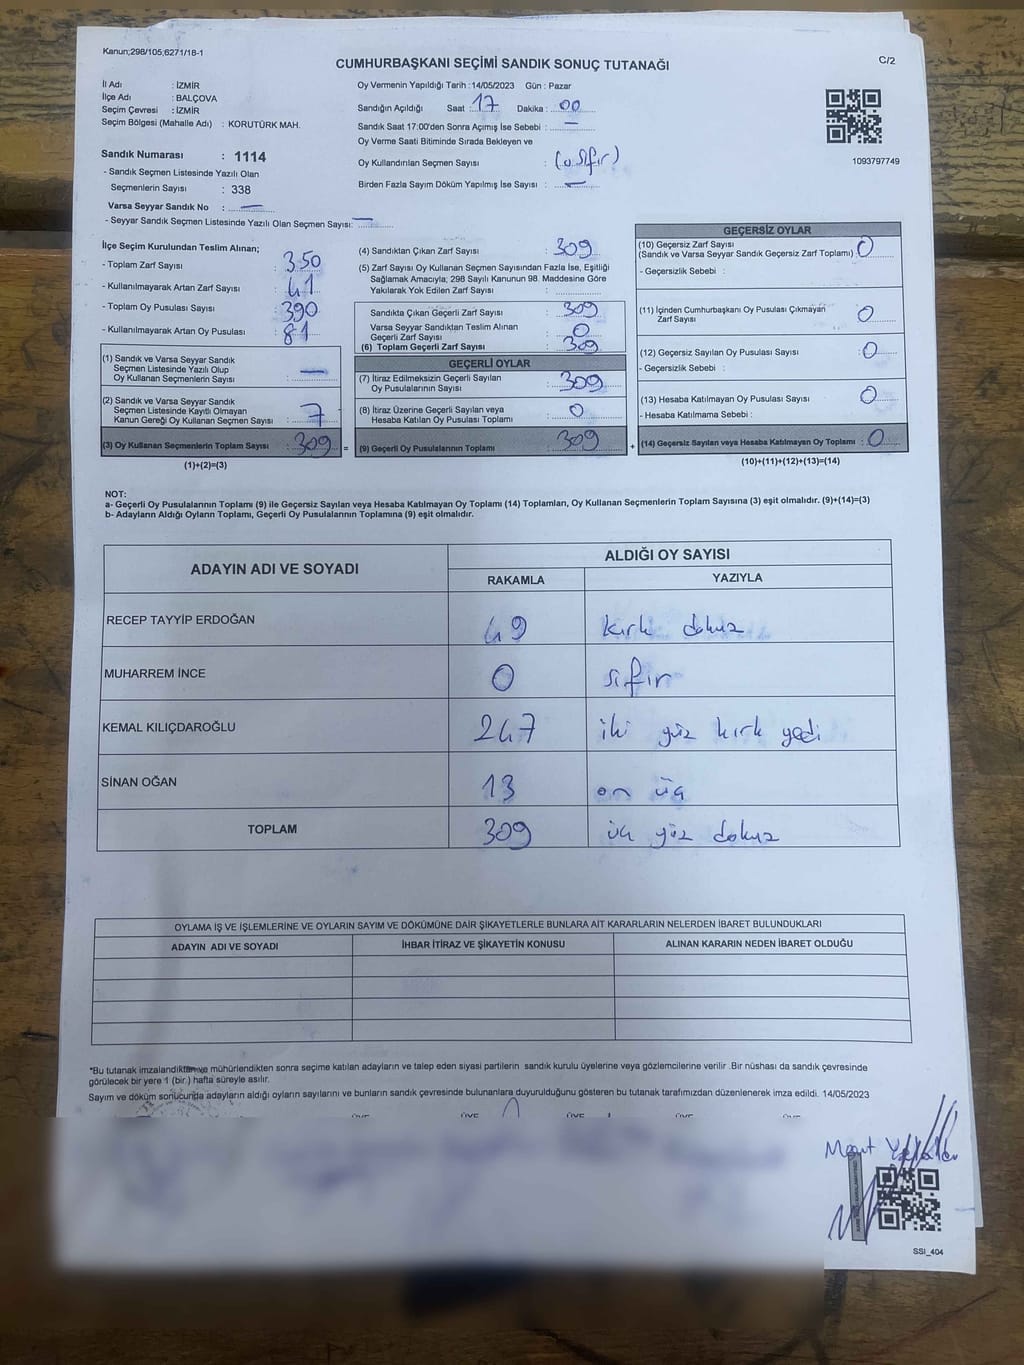 Kanun;298/105,6271/18-1
CUMHURBAŞKANI SEÇİMİ SANDIK SONUÇ TUTANAĞI
C/2
İl Adı : İZMİR
İlçe Adı : BALÇOVA
Seçim Çevresi : İZMİR
Seçim Bölgesi (Mahalle Adı) : KORUTÜRK MAH.
Oy Vermenin Yapıldığı Tarih :14/05/2023 Gün : Pazar
Sandığın Açıldığı Saat : 17 Dakika : 00
Sandık Saat 17:00'den Sonra Açımış İse Sebebi : —
Oy Verme Saati Bitiminde Sırada Bekleyen ve
Oy Kullandırılan Seçmen Sayısı : (0 sıfır)
Birden Fazla Sayım Döküm Yapılmış İse Sayısı : —
1093797749
Sandık Numarası : 1114
- Sandık Seçmen Listesinde Yazılı Olan
Seçmenlerin Sayısı : 338
Varsa Seyyar Sandık No : —
- Seyyar Sandık Seçmen Listesinde Yazılı Olan Seçmen Sayısı: —
İlçe Seçim Kurulundan Teslim Alınan;
- Toplam Zarf Sayısı : 350
- Kullanılmayarak Artan Zarf Sayısı : 41
- Toplam Oy Pusulası Sayısı : 390
- Kullanılmayarak Artan Oy Pusulası : 81
(1) Sandık ve Varsa Seyyar Sandık
Seçmen Listesinde Yazılı Olup
Oy Kullanan Seçmenlerin Sayısı : —
(2) Sandık ve Varsa Seyyar Sandık
Seçmen Listesinde Kayıtlı Olmayan
Kanun Gereği Oy Kullanan Seçmen Sayısı : 7
(3) Oy Kullanan Seçmenlerin Toplam Sayısı : 309 =
(1)+(2)=(3)
(4) Sandıktan Çıkan Zarf Sayısı : 309
(5) Zarf Sayısı Oy Kullanan Seçmen Sayısından Fazla İse, Eşitliği
Sağlamak Amacıyla; 298 Sayılı Kanunun 98. Maddesine Göre
Yakılarak Yok Edilen Zarf Sayısı :
Sandıkta Çıkan Geçerli Zarf Sayısı : 309
Varsa Seyyar Sandıktan Teslim Alınan
Geçerli Zarf Sayısı : 0
(6) Toplam Geçerli Zarf Sayısı : 309
GEÇERLİ OYLAR
(7) İtiraz Edilmeksizin Geçerli Sayılan
Oy Pusulalarının Sayısı : 309
(8) İtiraz Üzerine Geçerli Sayılan veya
Hesaba Katılan Oy Pusulası Toplamı : 0
(9) Geçerli Oy Pusulalarının Toplamı : 309 +
GEÇERSİZ OYLAR
(10) Geçersiz Zarf Sayısı
(Sandık ve Varsa Seyyar Sandık Geçersiz Zarf Toplamı) : 0
- Geçersizlik Sebebi :
(11) İçinden Cumhurbaşkanı Oy Pusulası Çıkmayan
Zarf Sayısı : 0
(12) Geçersiz Sayılan Oy Pusulası Sayısı : 0
- Geçersizlik Sebebi :
(13) Hesaba Katılmayan Oy Pusulası Sayısı : 0
- Hesaba Katılmama Sebebi :
(14) Geçersiz Sayılan veya Hesaba Katılmayan Oy Toplamı : 0
(10)+(11)+(12)+(13)=(14)
NOT:
a- Geçerli Oy Pusulalarının Toplamı (9) ile Geçersiz Sayılan veya Hesaba Katılmayan Oy Toplamı (14) Toplamları, Oy Kullanan Seçmenlerin Toplam Sayısına (3) eşit olmalıdır. (9)+(14)=(3)
b- Adayların Aldığı Oyların Toplamı, Geçerli Oy Pusulalarının Toplamına (9) eşit olmalıdır.
ADAYIN ADI VE SOYADI
ALDIĞI OY SAYISI
RAKAMLA YAZIYLA
RECEP TAYYİP ERDOĞAN 49 kırk dokuz
MUHARREM İNCE 0 sıfır
KEMAL KILIÇDAROĞLU 247 iki yüz kırk yedi
SİNAN OĞAN 13 on üç
TOPLAM 309 üç yüz dokuz
OYLAMA İŞ VE İŞLEMLERİNE VE OYLARIN SAYIM VE DÖKÜMÜNE DAİR ŞİKAYETLERLE BUNLARA AİT KARARLARIN NELERDEN İBARET BULUNDUKLARI
ADAYIN ADI VE SOYADI İHBAR İTİRAZ VE ŞİKAYETİN KONUSU ALINAN KARARIN NEDEN İBARET OLDUĞU
*Bu tutanak imzalandıktan ve mühürlendikten sonra seçime katılan adayların ve talep eden siyasi partilerin sandık kurulu üyelerine veya gözlemcilerine verilir .Bir nüshası da sandık çevresinde
görülecek bir yere 1 (bir ) hafta süreyle asılır.
Sayım ve döküm sonucunda adayların aldığı oyların sayılarını ve bunların sandık çevresinde bulunanlara duyurulduğunu gösteren bu tutanak tarafımızdan düzenlenerek imza edildi. 14/05/2023
ÜYE ÜYE ÜYE ÜYE ÜYE
SSI_404